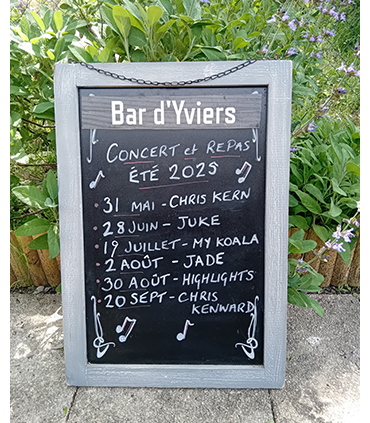 Bar d'Yviers
CONCERT et REPAS
ÉTÉ 2025
31 MAI - CHRIS KERN
28 JUIN - JUKE
19 JUILLET - MY KOALA
2 AOÛT - JADE
30 AOÛT - HIGHLIGHTS
20 SEPT - CHRIS
KENWARD